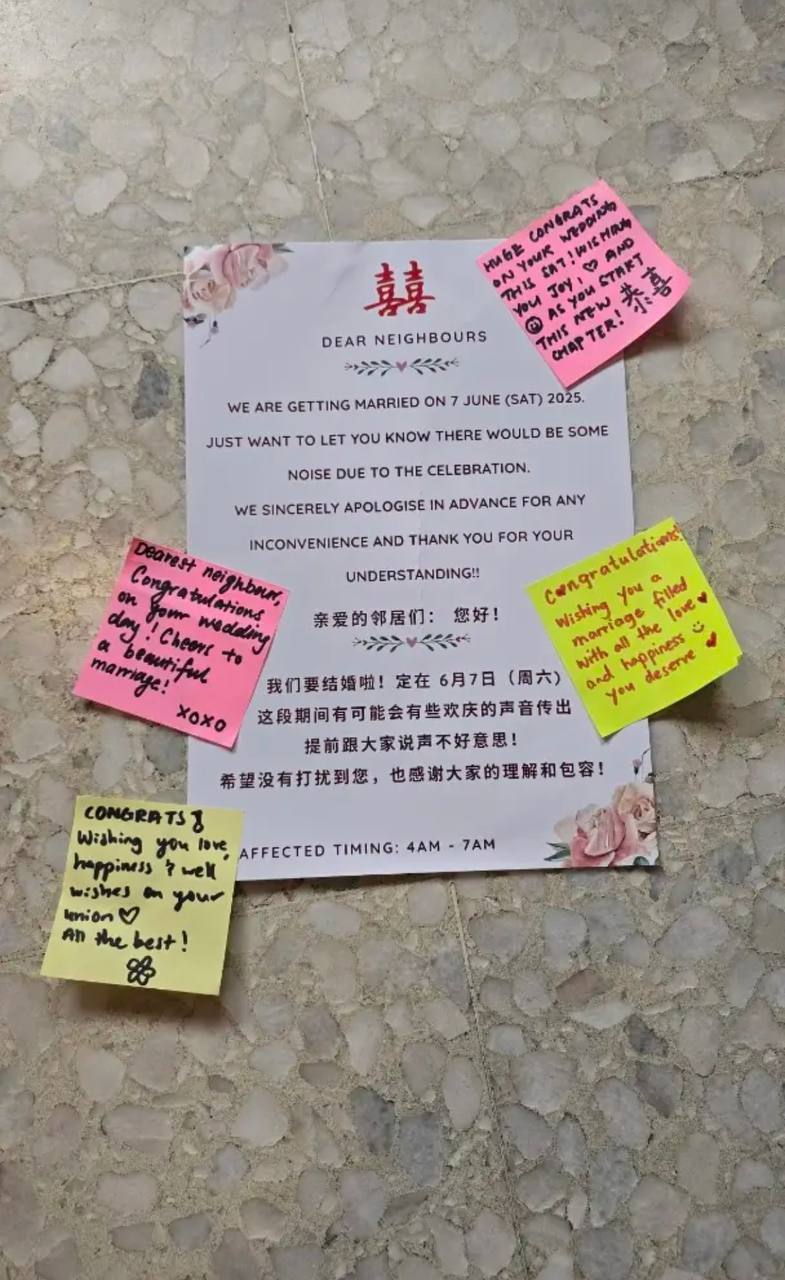 囍
DEAR NEIGHBOURS
WE ARE GETTING MARRIED ON 7 JUNE (SAT) 2025.
JUST WANT TO LET YOU KNOW THERE WOULD BE SOME
NOISE DUE TO THE CELEBRATION.
WE SINCERELY APOLOGISE IN ADVANCE FOR ANY
INCONVENIENCE AND THANK YOU FOR YOUR
UNDERSTANDING!!
亲爱的邻居们： 您好！
我们要结婚啦！定在 6月7日（周六）
这段期间有可能会有些欢庆的声音传出
提前跟大家说声不好意思！
希望没有打扰到您，也感谢大家的理解和包容！
AFFECTED TIMING: 4AM - 7AM
HUGE CONGRATS
ON YOUR WEDDING
THIS SAT! WISHING
YOU JOY, ♡ AND
☺ AS YOU START
THIS NEW
CHAPTER! 恭喜
Dearest neighbour,
Congratulations
on your wedding
day! Cheers to
a beautiful
marriage!
xoxo
Congratulations!
Wishing you a
marriage filled
with all the love ♥
and happiness ☺
you deserve ♥
CONGRATS!
Wishing you love,
happiness & well
wishes on your
union ♡
All the best!